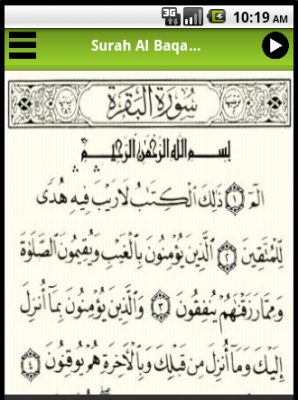 3G 10:19 AM
Surah Al Baqa...
سُورَةُ البَقَرَةِ
بِسْمِ اللَّهِ الرَّحْمَٰنِ الرَّحِيمِ
الٓمٓ ١ ذَٰلِكَ الْكِتَٰبُ لَا رَيْبَ فِيهِ هُدًى
لِّلْمُتَّقِينَ ٢ الَّذِينَ يُؤْمِنُونَ بِالْغَيْبِ وَيُقِيمُونَ الصَّلَوٰةَ
وَمِمَّا رَزَقْنَٰهُمْ يُنفِقُونَ ٣ وَالَّذِينَ يُؤْمِنُونَ بِمَآ أُنزِلَ
إِلَيْكَ وَمَآ أُنزِلَ مِن قَبْلِكَ وَبِالْآخِرَةِ هُمْ يُوقِنُونَ ٤